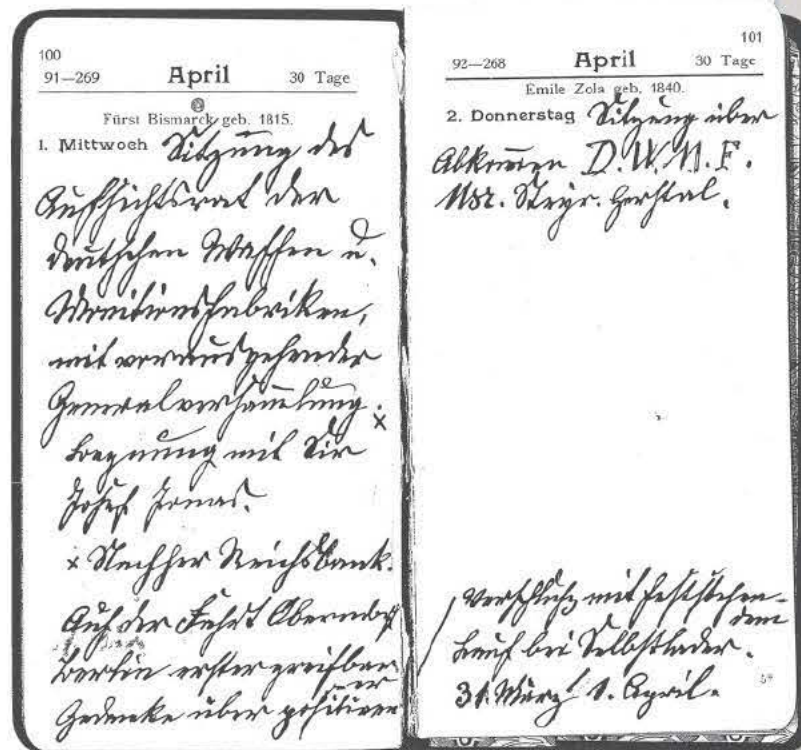 100
91—269 April 30 Tage
Fürst Bismarck geb. 1815.
1. Mittwoch Sitzung des
Aufsichtsrat der
deutschen Waffen u.
Munitionsfabriken,
mit vorausgehender
Generalversammlung. x
Begegnung mit Sir
Josef Jonas.
x Nachher Reichsbank.
Auf der Fahrt Oberndorf
Berlin erster greifbarer
Gedanke über positiven
101
92—268 April 30 Tage
Émile Zola geb. 1840.
2. Donnerstag Sitzung über
Abkommen D.W.M.F.
Msr. Steyr. Herstal.
Verschluß mit feststehen-
dem
Lauf bei Selbstlader.
31. März 1. April.